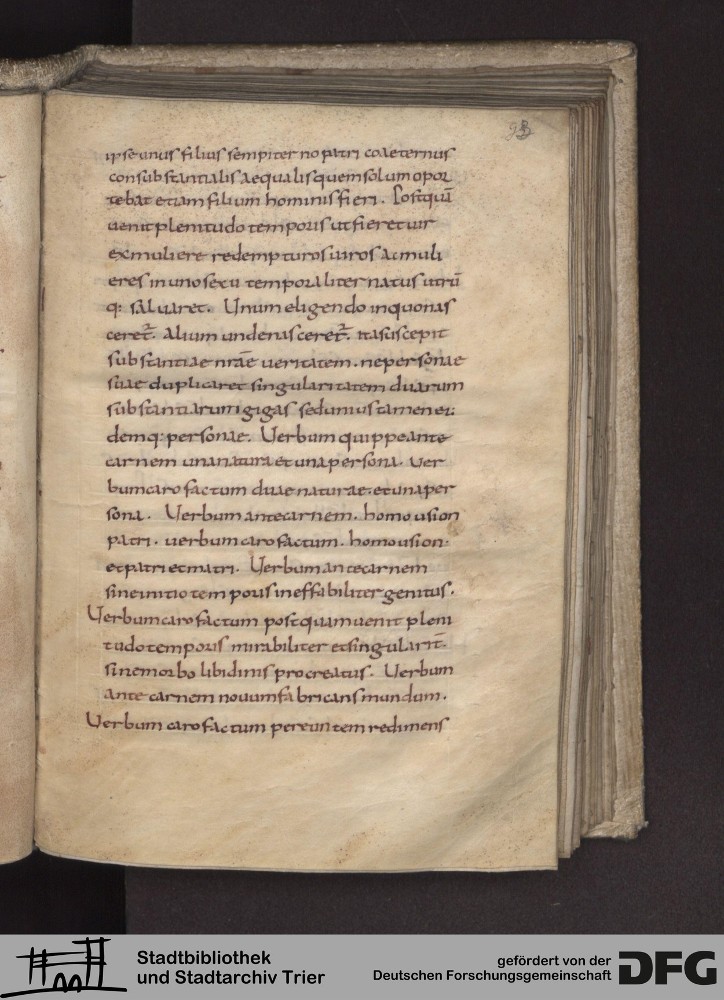 ipse unus filius sempiterno patri coaeternus
consubstantialis aequalis quem solum opor
tebat etiam filium hominis fieri. Postquā
uenit plenitudo temporis ut fieret uir
ex muliere redempturos uiros ac muli
eres in uno sexu temporaliter natus utrū
q: saluaret. Unum eligendo in quo nas
ceret̄. Alium unde nasceret̄. ita suscepit
substantiae nr̄ae ueritatem. ne personae
suae duplicaret singularitatem duarum
substantiarum gigas sed unius tamen ei:
demq: personae. Uerbum quippe ante
carnem una natura et una persona. Uer
bum caro factum duae naturae. et una per
sona. Uerbum ante carnem. homousion
patri. uerbum caro factum. homousion.
et patri et matri. Uerbum ante carnem
sine initio temporis ineffabiliter genitus.
Uerbum caro factum postquam uenit pleni
tudo temporis mirabiliter et singularit̄.
sine morbo libidinis procreatus. Uerbum
ante carnem nouum fabricans mundum.
Uerbum caro factum pereuntem redimens
Stadtbibliothek
und Stadtarchiv Trier
gefördert von der
Deutschen Forschungsgemeinschaft
DFG